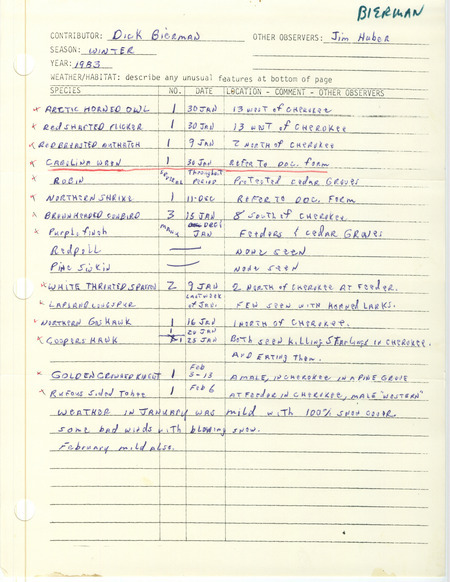 BIERMAN
CONTRIBUTOR: DICK BIERMAN OTHER OBSERVERS: Jim Huber
SEASON: WINTER
YEAR: 1983
WEATHER/HABITAT: describe any unusual features at bottom of page
SPECIES NO. DATE LOCATION - COMMENT - OTHER OBSERVERS
x ARCTIC HORNED OWL 1 30 JAN 13 WEST of CHEROKEE
x Red SHAFTED FLICKER 1 30 JAN 13 WEST of CHEROKEE
x RED BREASTED NUTHATCH 1 9 JAN 2 NORTH of CHEROKEE
x CAROLINA WREN 1 30 JAN REFER TO DOC. form
x ROBIN SEVERAL Throughout PERIOD Protected cedar Groves
x NORTHERN Shrike 1 11-DEC REFER TO DOC. Form
x BROWNHEADED COWBIRD 3 15 JAN 8 South of CHEROKEE
x Purple finch MANY DEC & JAN Feeders & cedar Groves
Redpoll — NONE SEEN
Pine Siskin — NONE SEEN
x WHITE THROATED SPARROW 2 9 JAN 2 NORTH of CHEROKEE AT FEEDER.
x LAPLAND LONGSPUR LAST WEEK of JAN. FEW SEEN WITH HORNED LARKS.
x NORTHERN GOSHAWK 1 16 JAN 1 NORTH of CHEROKEE.
x COOPERS HAWK 1 20 JAN
1 23 JAN Both seen killing Starlings in CHEROKEE.
AND EATING Them.
x GOLDEN CROWNED KINGLET 1 Feb 3-13 A MALE, in CHEROKEE in A PINE GROVE
x RUFOUS Sided Tohee 1 Feb 6 AT FEEDER in CHEROKEE, MALE "WESTERN"
WEATHER IN JANUARY WAS mild with 100% snow cover.
some bad winds with blowing snow.
February mild also.